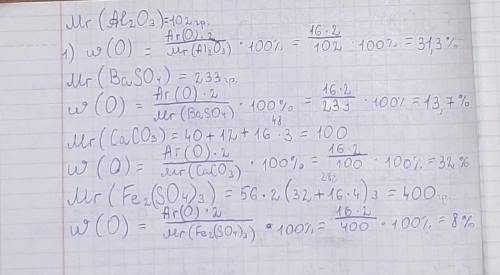 Mr(Al₂O₃)=102гр.
1) w(O) = Ar(O)·2 / Mr(Al₂O₃) · 100% = 16·2 / 102 · 100% = 31,3%
Mr(BaSO₄) = 233гр.
w(O) = Ar(O)·2 / Mr(BaSO₄) · 100% = 16·2 / 233 · 100% = 13,7%
48
Mr(CaCO₃) = 40+12+16·3 = 100
w(O) = Ar(O)·2 / Mr(CaCO₃) · 100% = 16·2 / 100 · 100% = 32%
288
Mr(Fe₂(SO₄)₃) = 56·2(32+16·4)3 = 400гр.
w(O) = Ar(O)·2 / Mr(Fe₂(SO₄)₃) · 100% = 16·2 / 400 · 100% = 8%